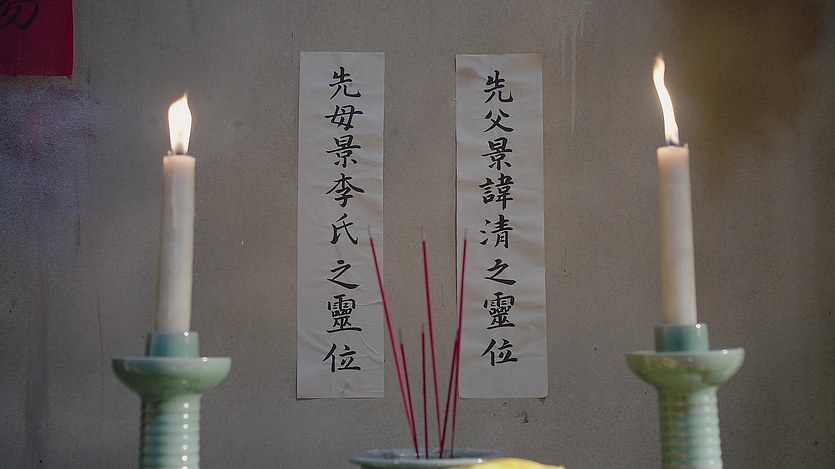 先父景諱清之靈位
先母景李氏之靈位